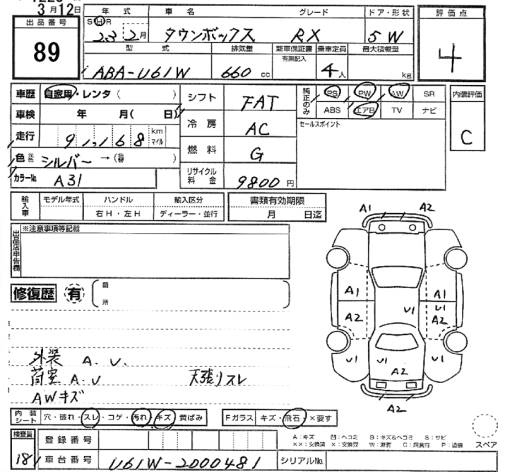 3月12日
出品番号
89
年式 車名 グレード ドア・形状
S H 23 2月 タウンボックス RX 5W
型式 排気量 新車保証書 乗車定員 最大積載量
有無記入
ABA-U61W 660cc 4人 kg
評価点
4
車歴 自家用・レンタ( )
車検 年 月( 日)
走行 91,168 km マイル
色 シルバー →( )
カラーNo A31
シフト FAT
冷房 AC
燃料 G
リサイクル料金 9800円
純正のみ PS PW AW SR
ABS エアB TV ナビ
セールスポイント
内装評価
C
輸入車 モデル年式 ハンドル 輸入区分
右H・左H ディーラー・並行
書類有効期限
月 日迄
※注意事項等記載
修復歴 有
箇所
外装 A. U.
荷室 A. U 天張りスレ
AWキズ
A1 A2
A1 A1
U1 U1
A2 A2
U1 U1 U1
A2
内装シート 穴・破れ・スレ・コゲ・汚れ・キズ・黄ばみ
Fガラス キズ・飛石・×要す
A:キズ
スペア
検査員
181
登録番号
車台番号 U61W-2000481
シリアルNo.